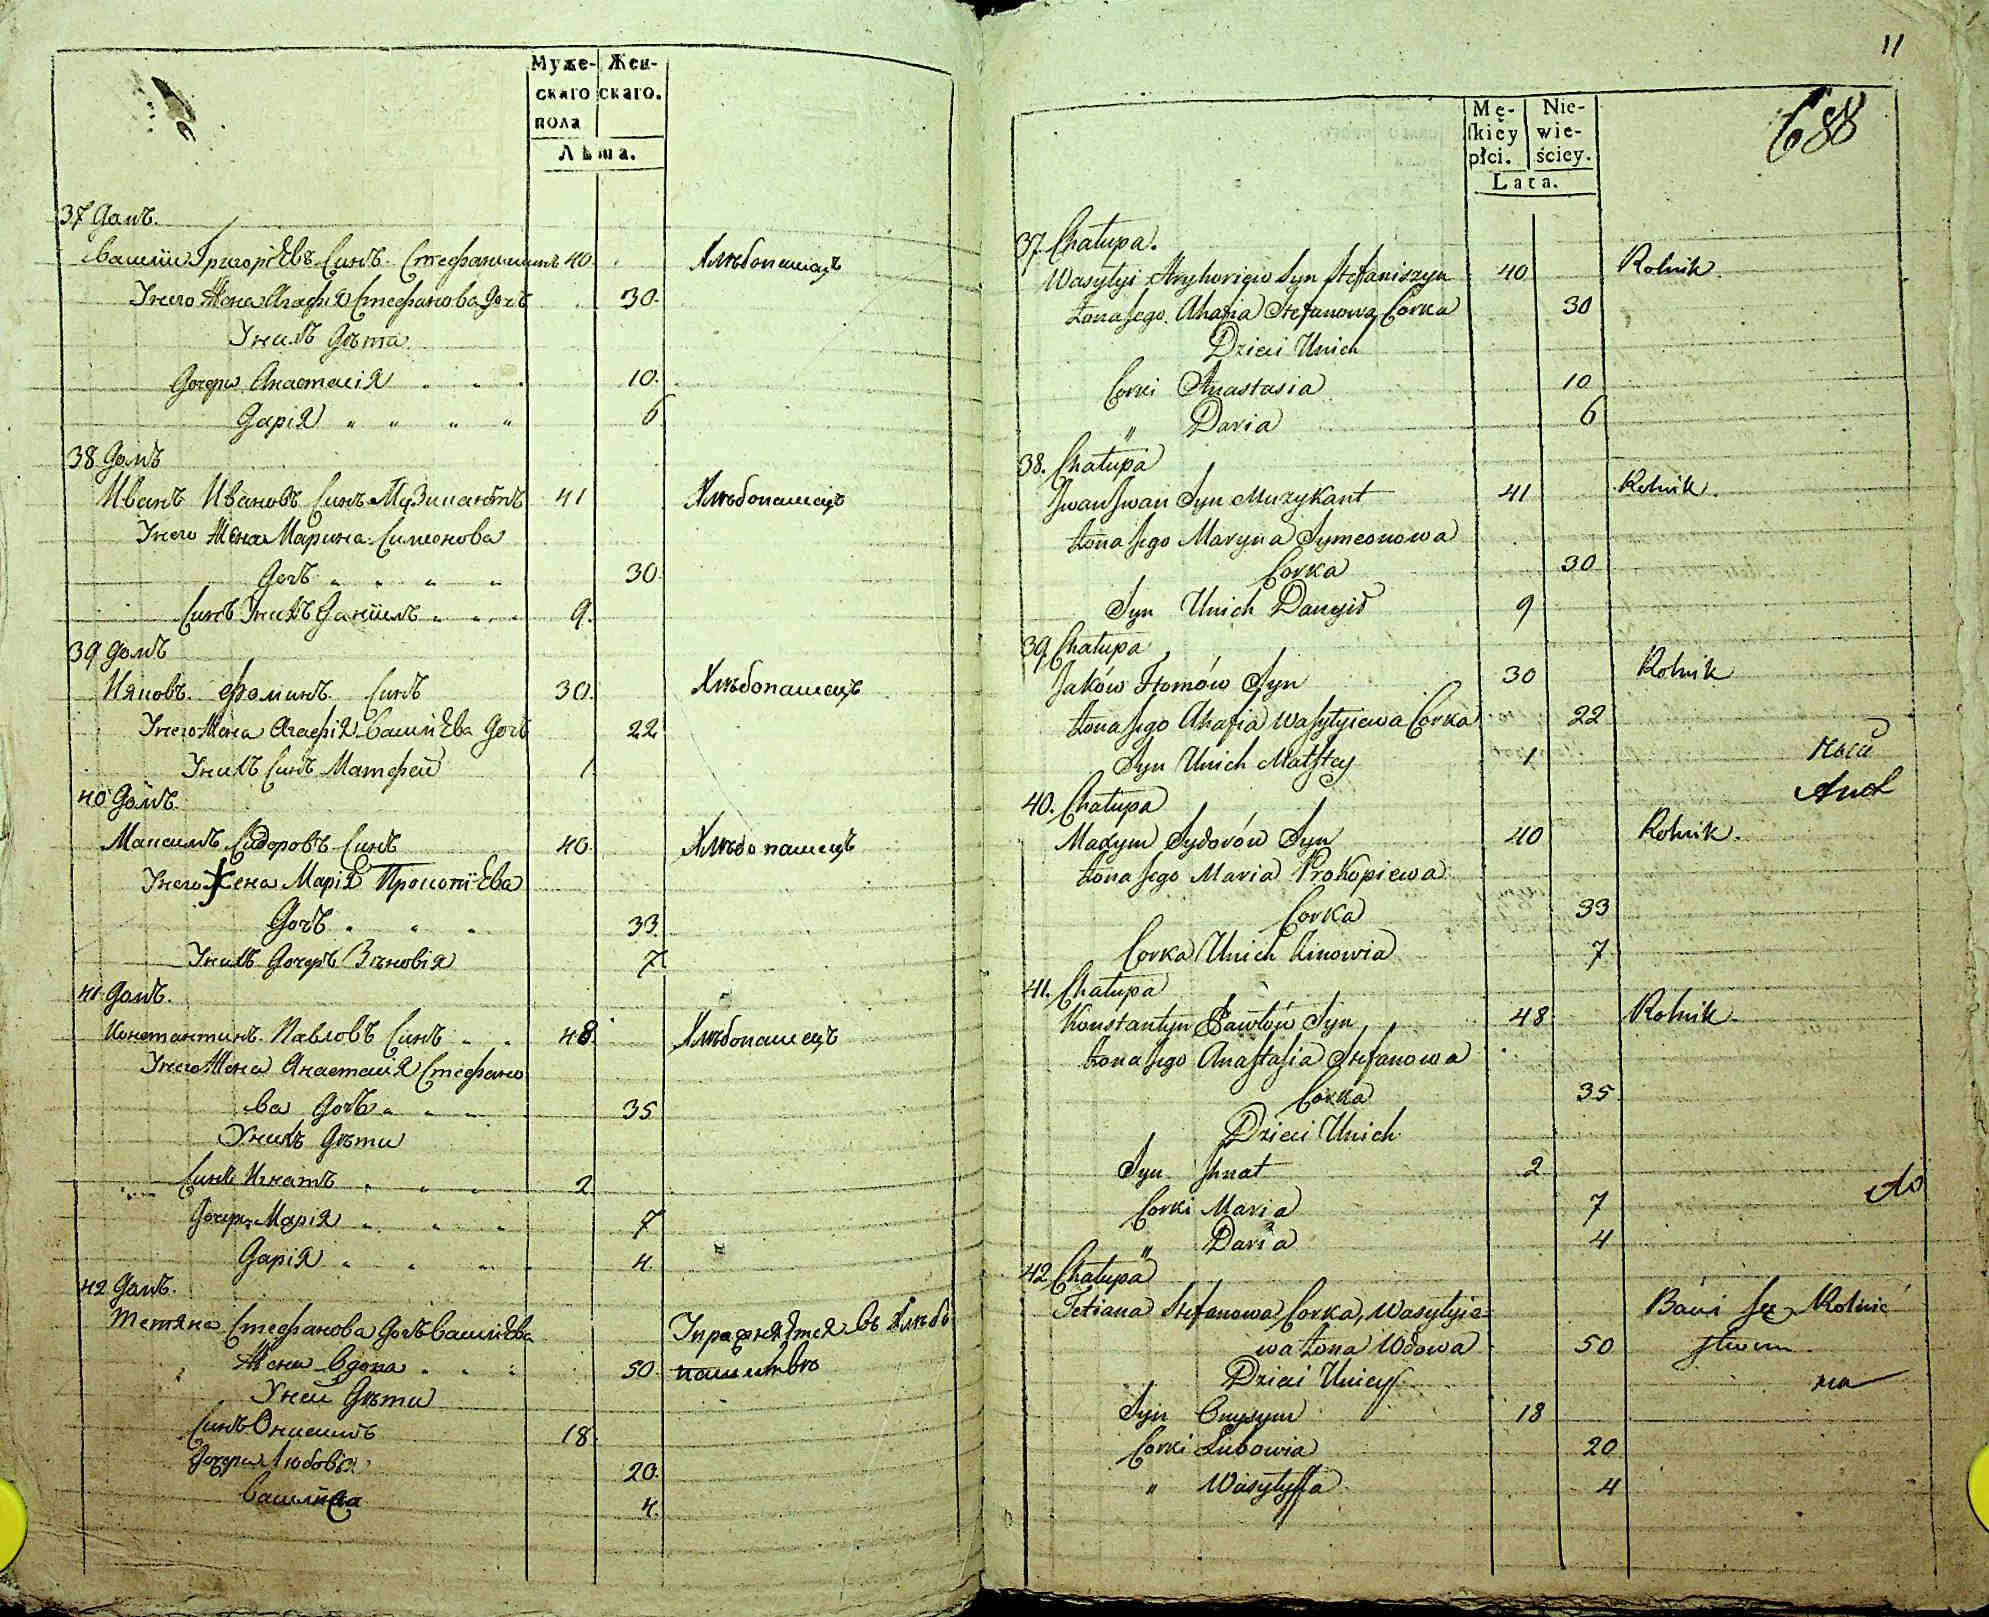 Муже- Жен-
скаго скаго.
пола
Лѣта.
37 Домъ.
Василій Григоріевъ Синъ Стефанишинъ 40. Хлѣбопашецъ
Унего Жена Агафія Стефанова Дочь 30.
Унихъ Дѣти
Дочери Анастасія " " 10.
Дарія " " " " 6
38 Домъ
Иванъ Ивановъ Синъ Музикантъ 41 Хлѣбопашецъ
Унего Жена Марина Симеонова
Дочь " " " " 30.
Синъ Унихъ Даніилъ " " " 9.
39 Домъ
Іяковъ Фоминъ Синъ 30. Хлѣбопашецъ
Унего Жена Агафія Василіева Дочь 22
Унихъ Синъ Матфей 1
40 Домъ.
Максимъ Сидоровъ Синъ 40. Хлѣбопашецъ
Унего Жена Марія Прокопіева
Дочь " " " 33.
Унихъ Дочерь Зѣновія 7.
41 Домъ.
Константинъ Павловъ Синъ " " 48. Хлѣбопашецъ
Унего Жена Анастасія Стефано
ва Дочь " " " 35
Унихъ Дѣти
Синъ Игнатъ " " " 2.
Дочери Марія " " " 7
Дарія " " " " 4.
42 Домъ.
Тетяна Стефанова Дочь Василіева Упражняется въ Хлѣбо
Жена Вдова " " " 50. пашествѣ
Уней Дѣти
Синъ Онисимъ 18.
Дочери Любовія 20.
Василиса 4.
11
688
Mę- Nie-
skiey wie-
płci. ściey.
Lata.
37. Chałupa.
Wasylyi Hryhoriew Syn Stefaniszyn 40 Rolnik.
Żona Jego Ahafia Stefanowa Corka 30
Dzieci Unich
Corki Anastasia 10
" Daria 6
38. Chałupa
Jwan Jwan Syn Muzykant 41 Rolnik.
Żona Jego Maryna Symeonowa
Corka 30
Syn Unich Danyił 9
39. Chałupa
Jaków Fomów Syn 30 Rolnik
Żona Jego Ahafia Wasylyiewa Corka 22
Syn Unich Matftey 1
40. Chałupa
Maxym Sydorów Syn 40 Rolnik.
Żona Jego Maria Prokopiewa
Corka 33
Corka Unich Zinowia 7
41. Chałupa
Konstantyn Pawłów Syn 48 Rolnik
Żona Jego Anastasia Stefanowa
Corka 35
Dzieci Unich
Syn Jhnat 2
Corki Maria 7
" Daria 4
42 Chałupa
Tetiana Stefanowa Corka, Wasylyie- Bawi Się Rolnic
wa Żona Wdowa 50 stwem
Dzieci Uniey
na
Syn Onysym 18
Corki Lubowia 20
" Wasylyssa 4